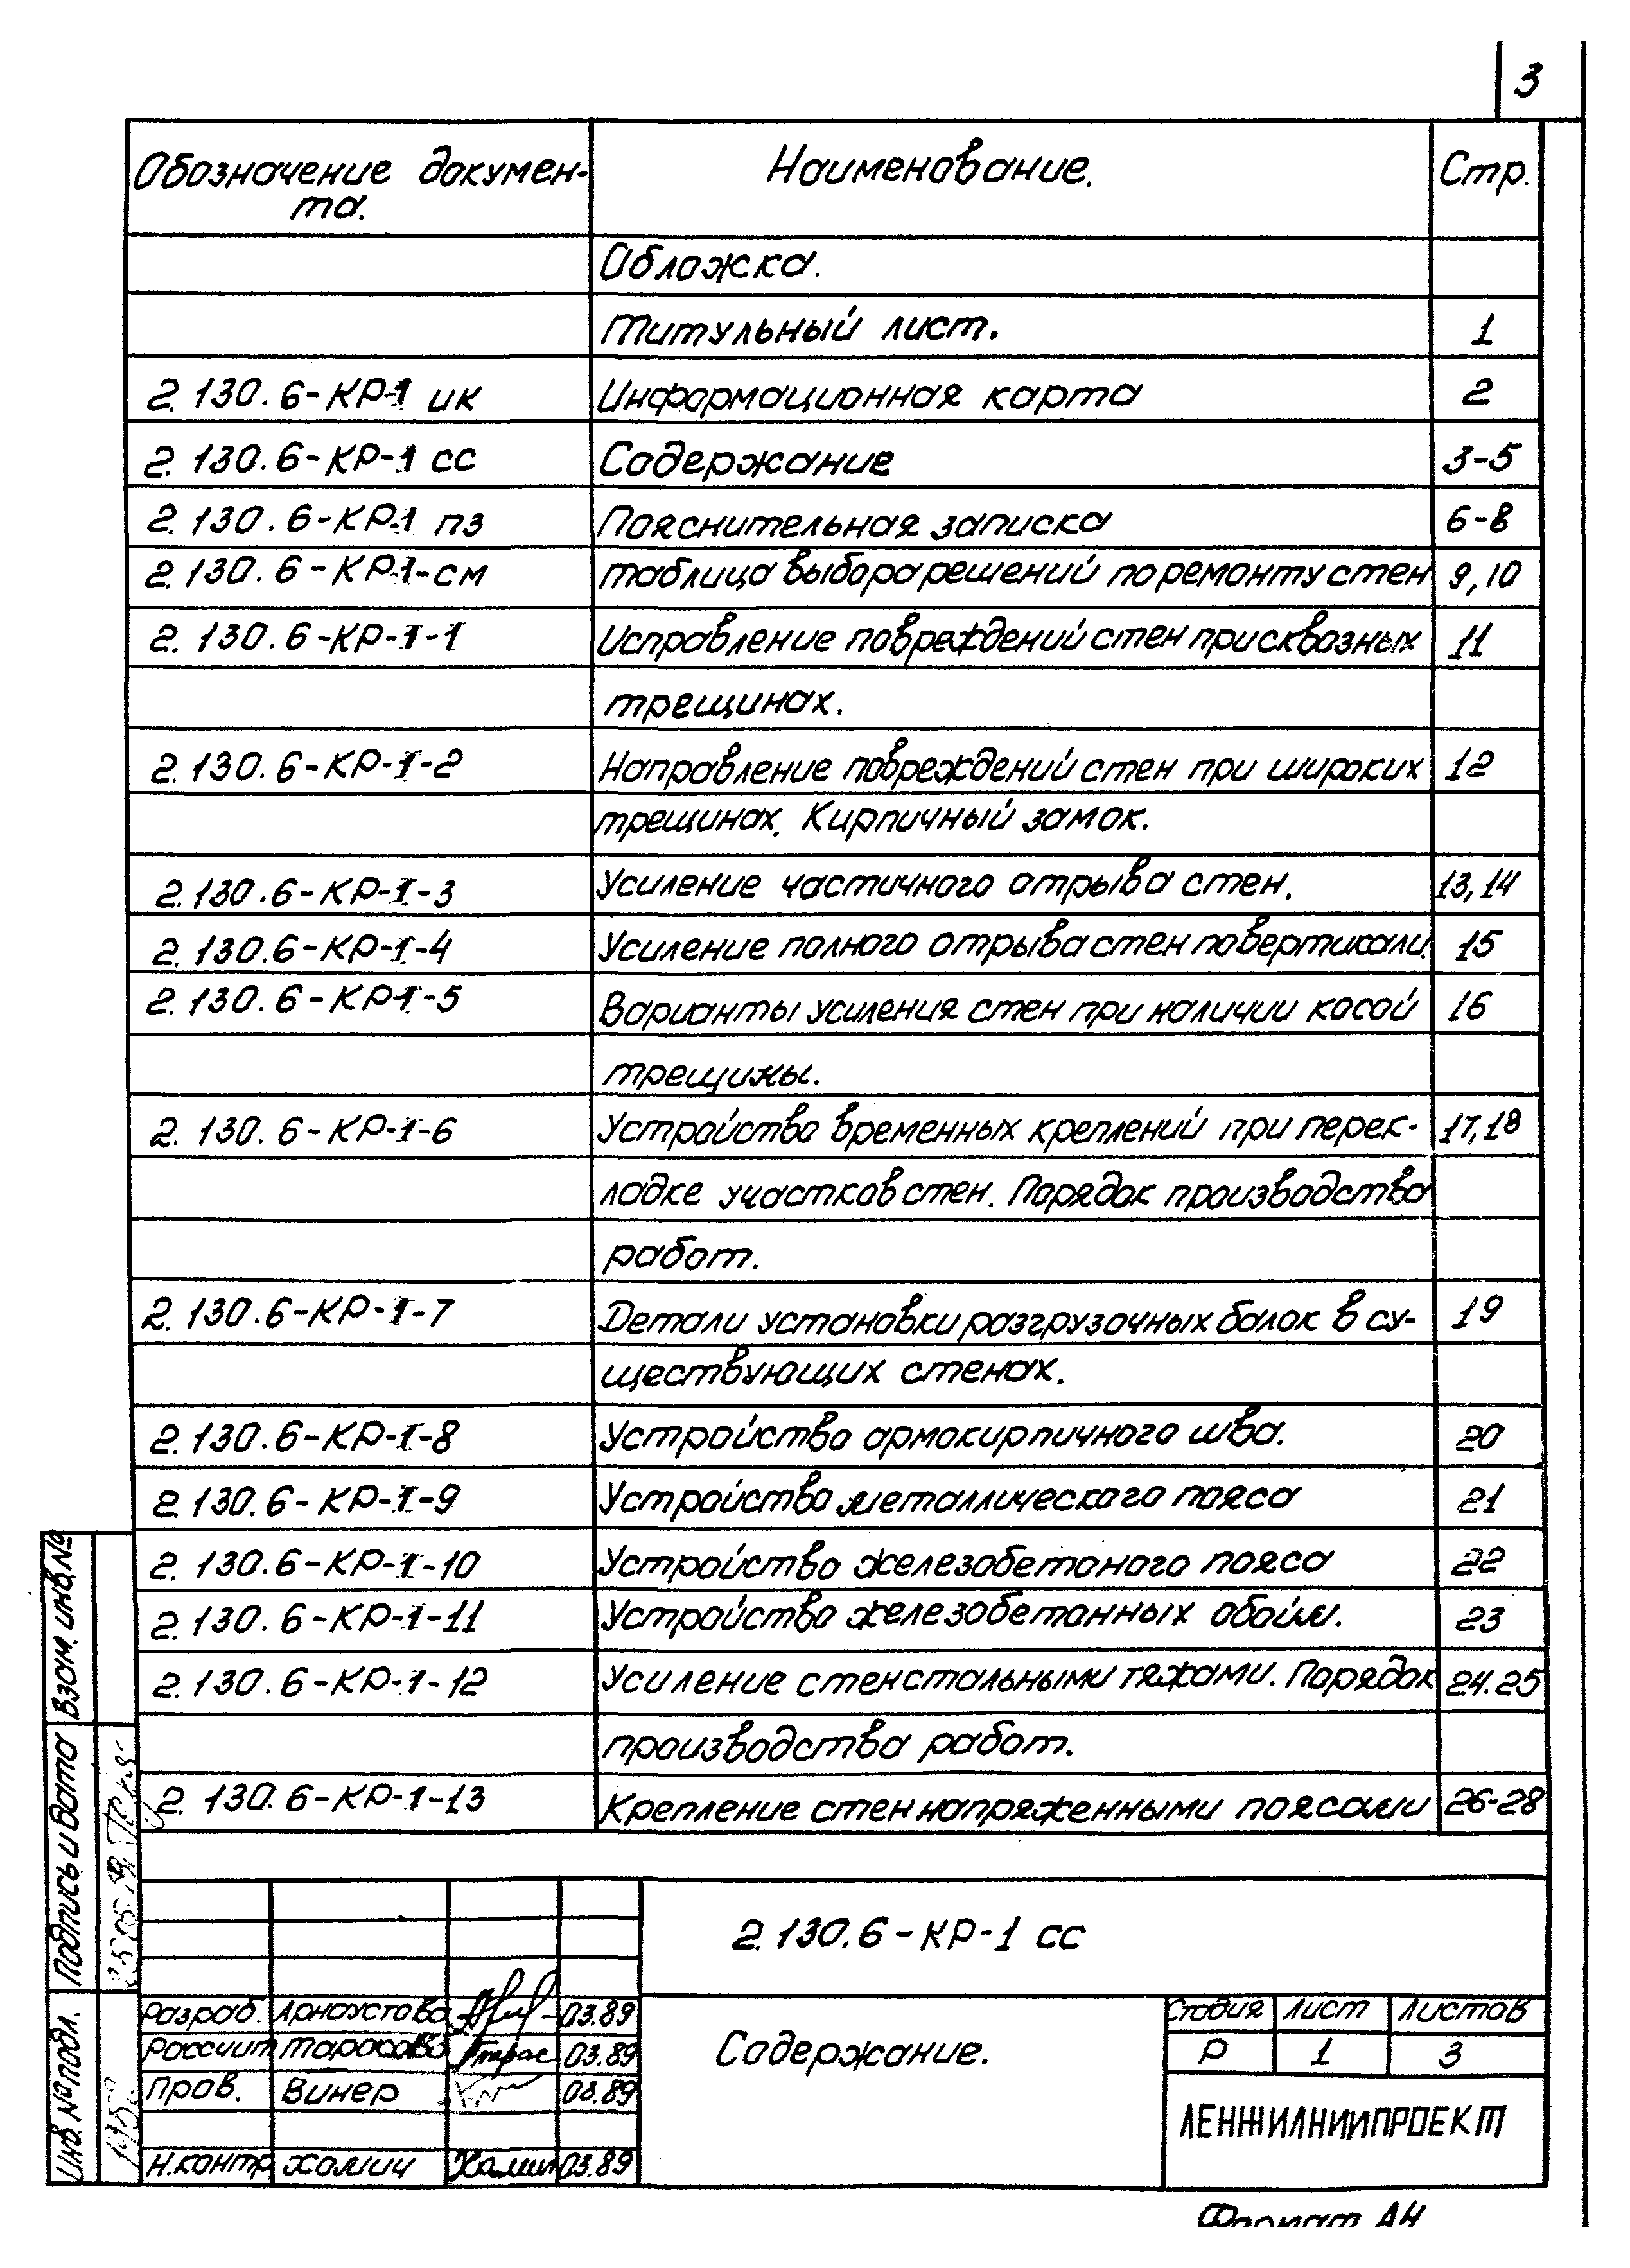 3
Обозначение докумен-
та.
Наименование.
Стр.
Обложка.
Титульный лист. 1
2.130.6-КР-1 ик Информационная карта 2
2.130.6-КР-1 сс Содержание 3-5
2.130.6-КР-1 пз Пояснительная записка 6-8
2.130.6-КР-1-см таблица выбора решений по ремонту стен 9,10
2.130.6-КР-1-1 Исправление повреждений стен при сквозных 11
трещинах.
2.130.6-КР-1-2 Направление повреждений стен при широких 12
трещинах. Кирпичный замок.
2.130.6-КР-1-3 Усиление частичного отрыва стен. 13,14
2.130.6-КР-1-4 Усиление полного отрыва стен по вертикали. 15
2.130.6-КР-1-5 Варианты усиления стен при наличии косой 16
трещины.
2.130.6-КР-1-6 Устройство временных креплений при перек- 17,18
ладке участков стен. Порядок производства
работ.
2.130.6-КР-1-7 Детали установки разгрузочных балок в су- 19
ществующих стенах.
2.130.6-КР-1-8 Устройство армокирпичного шва. 20
2.130.6-КР-1-9 Устройство металлического пояса 21
2.130.6-КР-1-10 Устройство железобетоного пояса 22
2.130.6-КР-1-11 Устройство железобетонных обойм. 23
2.130.6-КР-1-12 Усиление стен стальными тяжами. Порядок 24.25
производства работ.
2.130.6-КР-1-13 Крепление стен напряженными поясами 26-28
Взам. инв. №
Подпись и дата
Инв. № подл.
2.130.6-КР-1 сс
Разраб. Арноустова 03.89
Рассчит Тарасова Тарас 03.89
Пров. Винер 03.89
Н.контр Хомич Хомич 03.89
Содержание.
Стадия Лист Листов
Р 1 3
ЛЕНЖИЛНИИПРОЕКТ
Формат А4